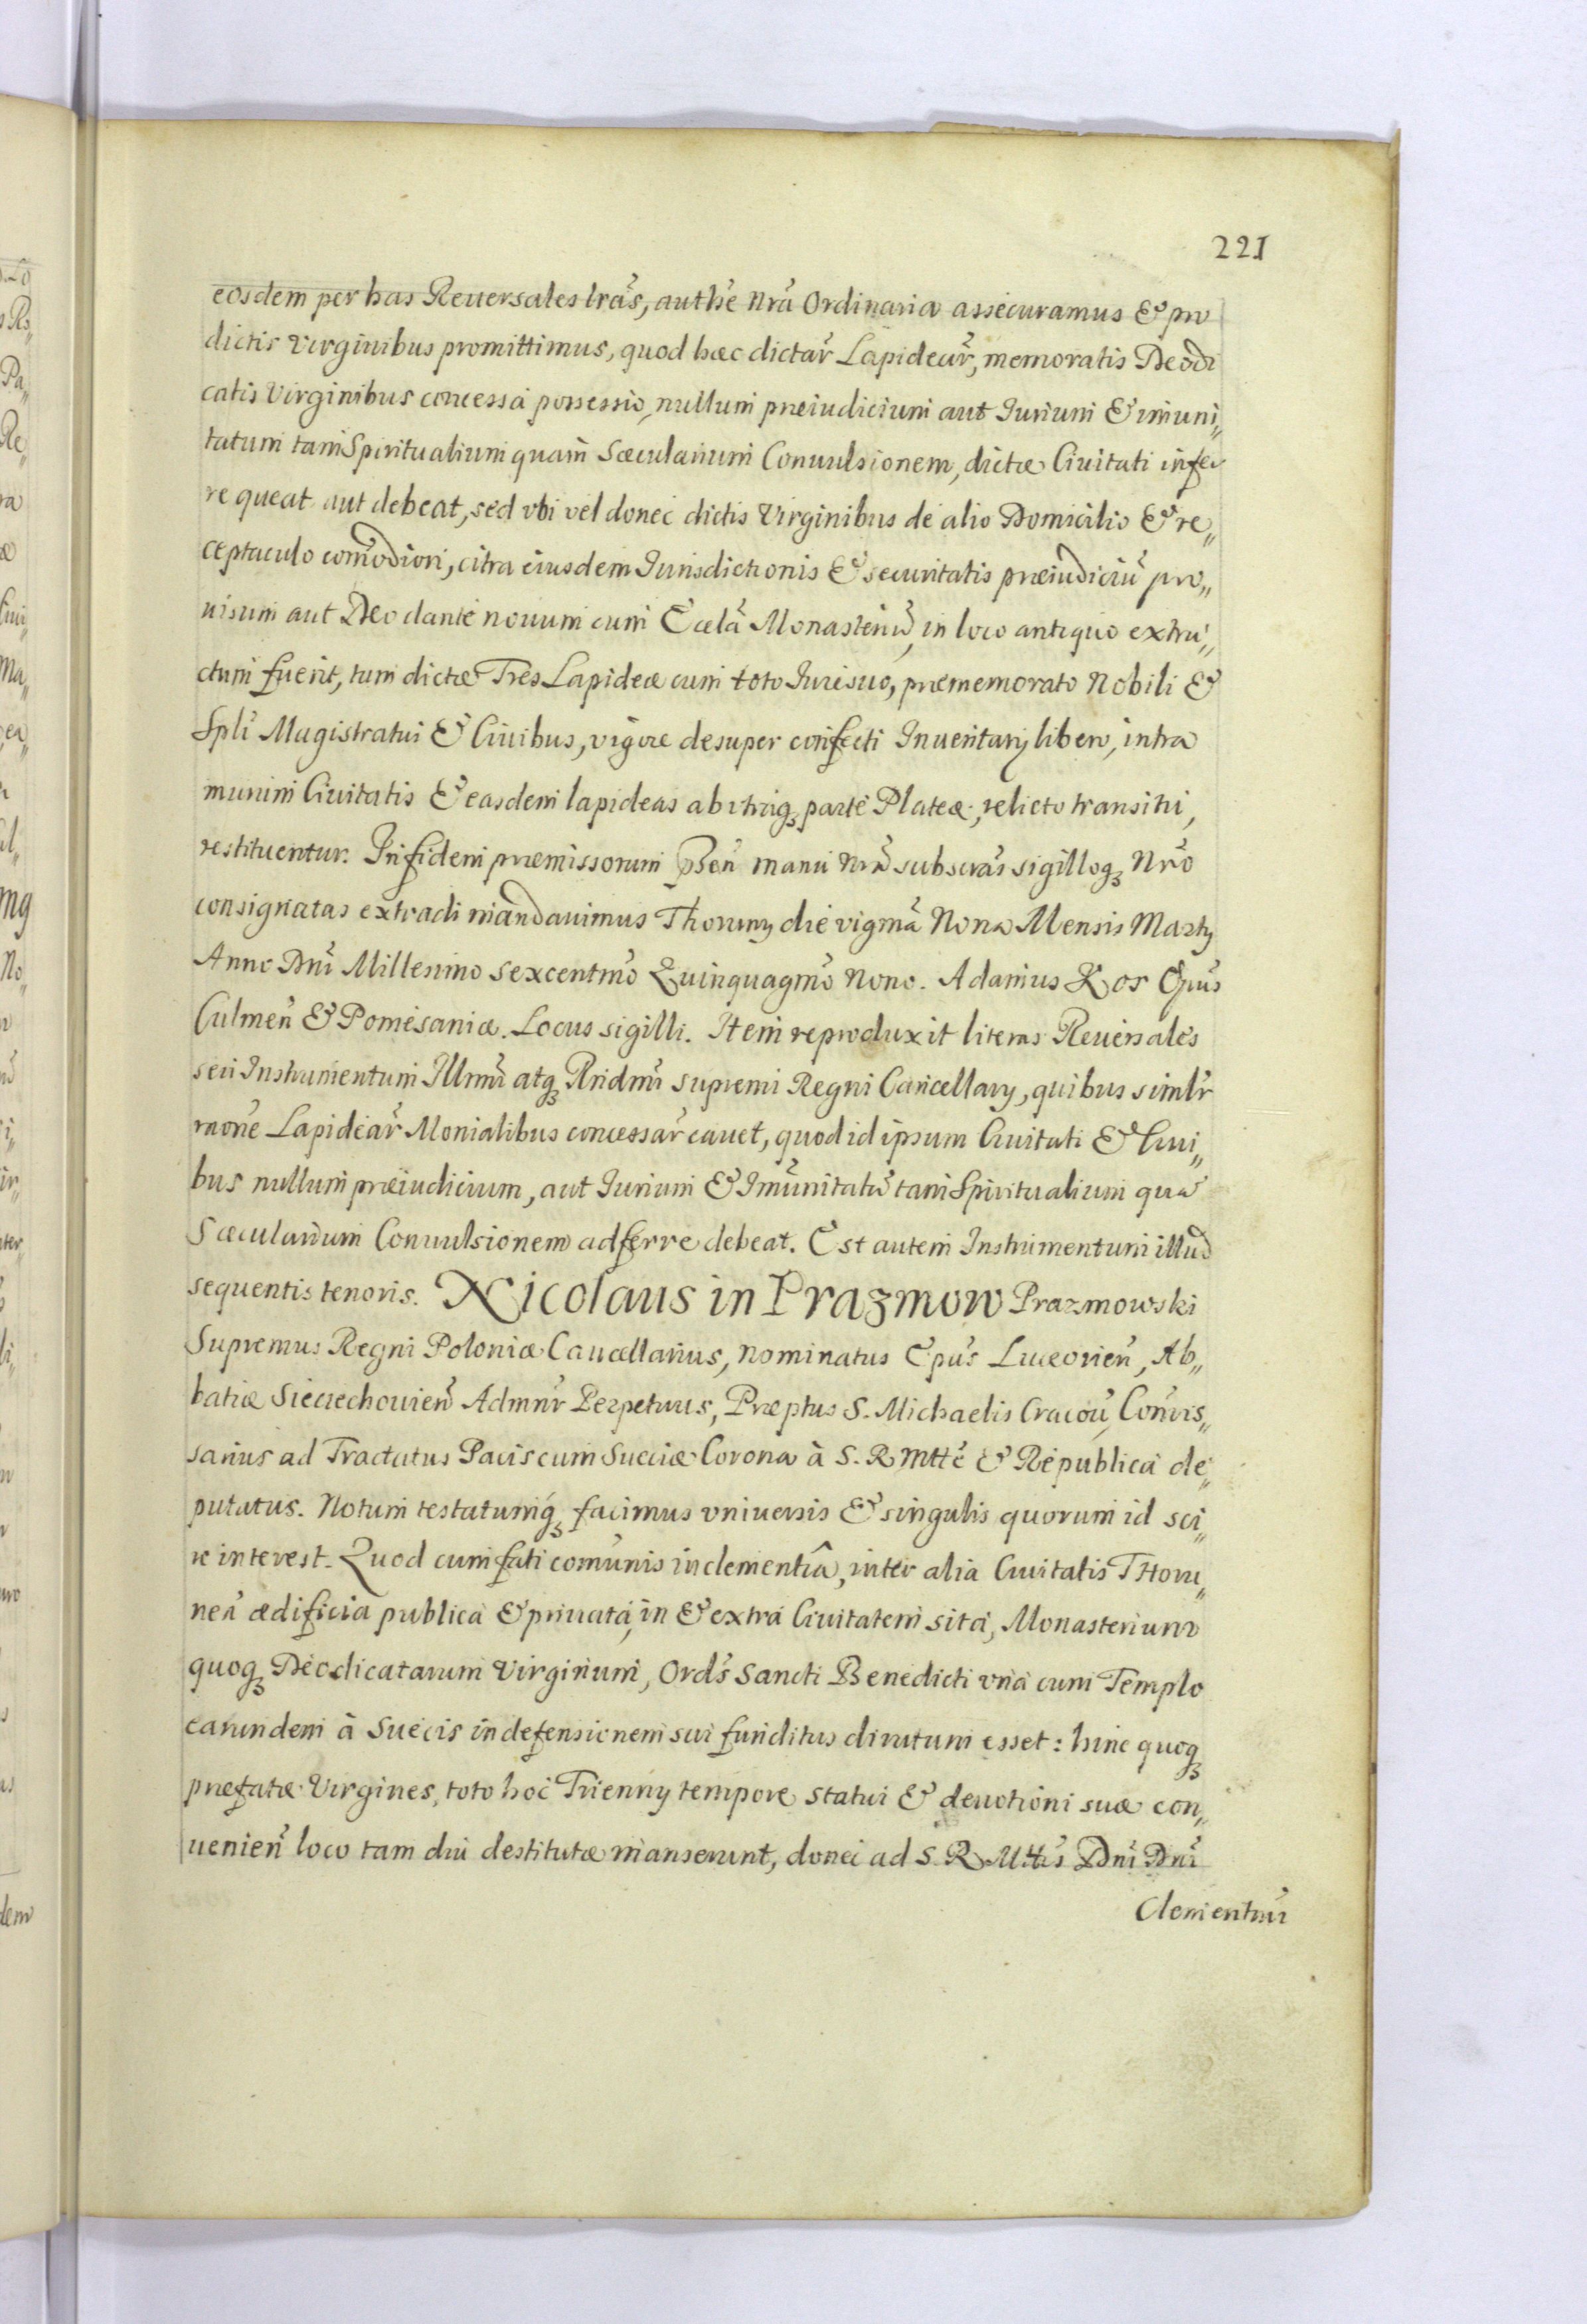 221
eosdem per has Reuersales lrãs, authẽ nrã Ordinaria assecuramus & pro
dictis Virginibus promittimus, quod hæc dictar̃ Lapidear̃, memoratis Deodi
catis Virginibus concessa possessio, nullum præiudicium aut Iurium & imuni„
tatum tam Spiritualium quam Sæcularium Conuulsionem, dictæ Ciuitati infer
re queat aut debeat, sed vbi vel donec dictis Virginibus de alio Domicilio & re„
ceptaculo com̃odiori, citra eiusdem Iurisdictionis & securitatis præiudiciũ pro„
uisum aut Deo dante nouum cum Ecclã Monasteriũ, in loco antiquo extru„
ctum fuerit, tum dictæ Tres Lapideæ cum toto Iure suo, præmemorato Nobili &
Spli Magistratui & Ciuibus, vigore desuper confecti Inuentarij libero, intra
murum Ciuitatis & easdem lapideas ab vtriq₃ parte Plateæ, relicto transitu,
restituentur. In fidem præmissorum p̃sen̄ manu Nrã subscrãs sigilloq₃ Nrõ
consignatas extradi mandauimus Thoruny die vigmã Nona Mensis Marty
Anno Dñi Millesimo sexcentmõ Quinquagmõ Nono. Adamus Kos Epũs
Culmen̄ & Pomesaniæ. Locus sigilli. Item reproduxit literas Reuersales
seu Instrumentum Illmĩ atq₃ Rndmĩ supremi Regni Cancellary, quibus simlr̃
raõne Lapidear̃ Monialibus concessar̃ cauet, quod id ipsum Ciuitati & Ciui„
bus nullum præiudicium, aut Iurium & Im̃unitatũ tam Spiritualium quã
Sæcularium Conuulsionem adferre debeat. Est autem Instrumentum illud
sequentis tenoris. Nicolaus in Prazmow Prazmowski
Supremus Regni Poloniæ Cancellarius, nominatus Epũs Luceorien̄, Ab„
batiæ Sieciechouien̄ Admnr̃ Perpetuus, Præptus S. Michaelis Cracoũ, Com̃is„
sarius ad Tractatus Pacis cum Sueciæ Corona à S. R. Mttẽ & Republica de„
putatus. Notum testatumq₃ facimus vniuersis & singulis quorum id sci„
re interest. Quod cum fati com̃unis inclementiâ, inter alia Ciuitatis Thoru„
nen̄ ædificia publica & priuata, in & extra Ciuitatem sita, Monasterium
quoq₃ Deodicatarum Virginum, Ords̃ Sancti Benedicti vnà cum Templo
earundem à Suecis in defensionem sui funditus dirutum esset: hinc quoq₃
præfatæ Virgines, toto hoc Trienny tempore statui & deuotioni suæ con„
uenien̄ loco tam diu destitutæ manserunt, donec ad S. R. Mttis̃ Dñi Dñi
Clementmĩ